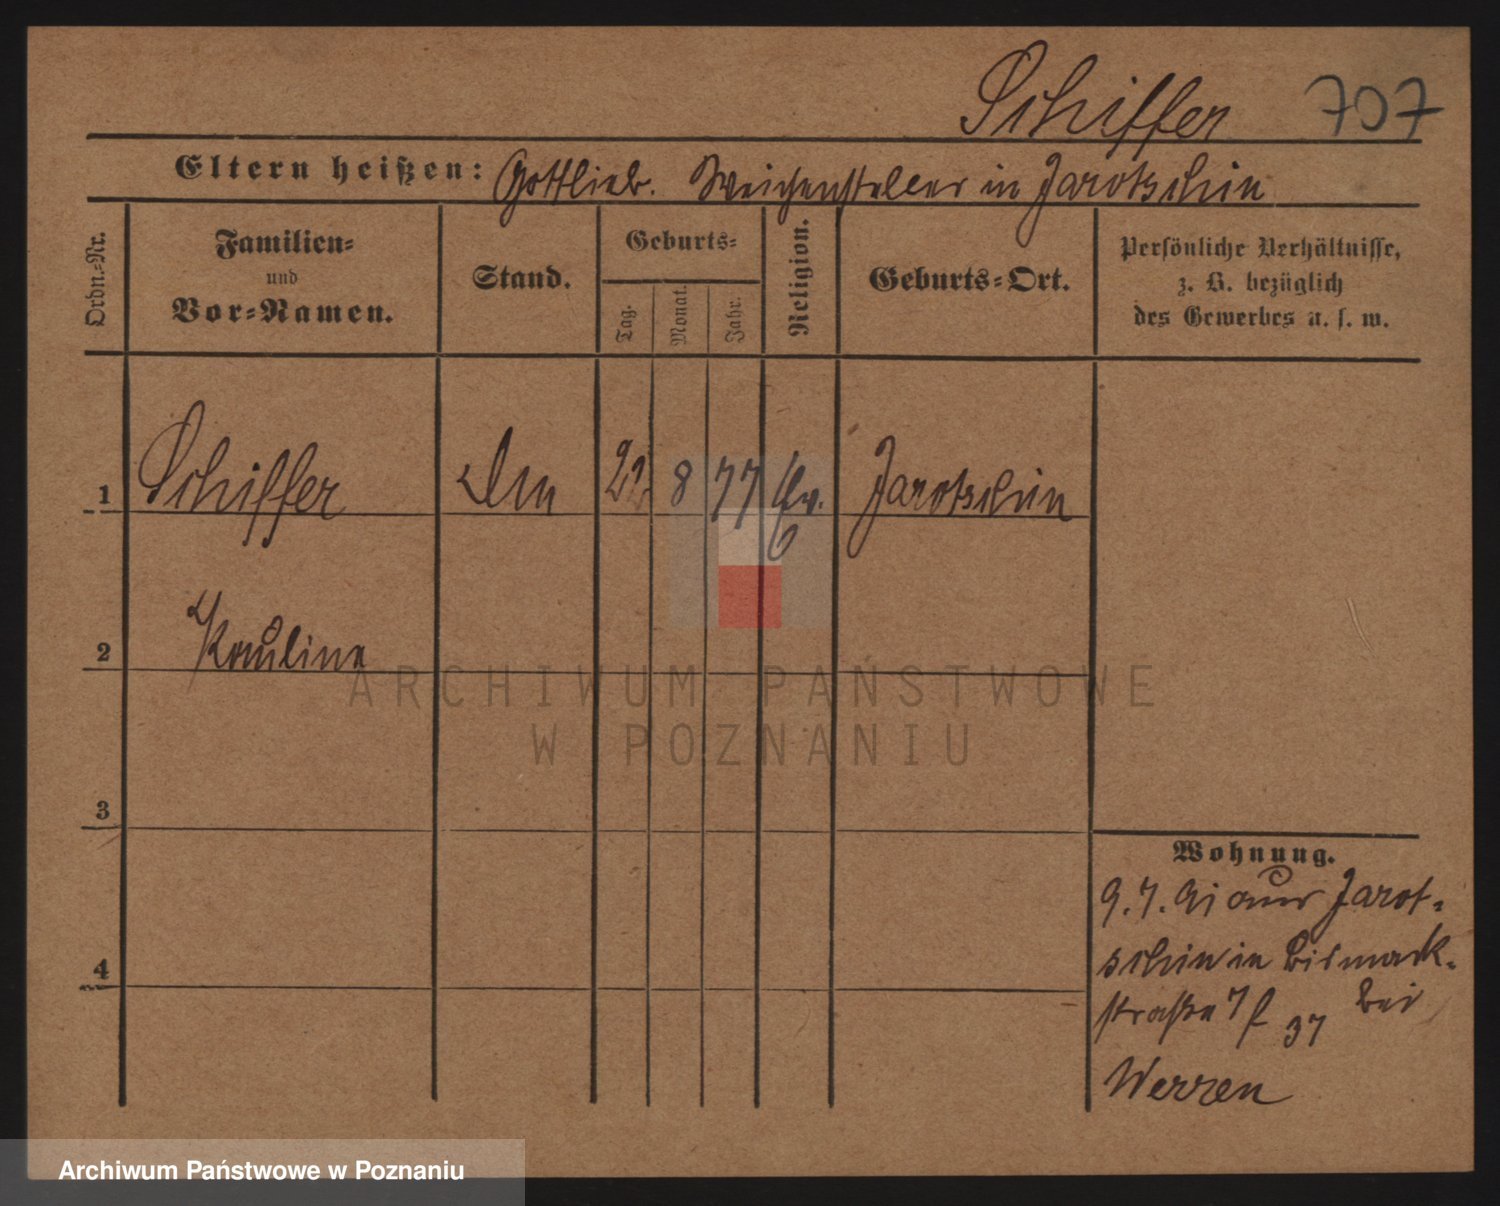 Schiffer 707
Eltern heißen: Gottlieb. Weichensteller in Jarotschin
Ordn.-Nr.
Familien- und Vor-Namen.
Stand.
Geburts-
Tag. Monat. Jahr.
Religion.
Geburts-Ort.
Persönliche Verhältnisse,
z. B. bezüglich
des Gewerbes u. s. w.
1 Schiffer 22 8 77 Ev. Jarotschin
2 Pauline
3
4
Wohnung.
9. 7. 91 aus Jarot-
schin in Bismark-
straße 7 37 bei
Werren
ARCHIWUM PAŃSTWOWE
W POZNANIU
Archiwum Państwowe w Poznaniu